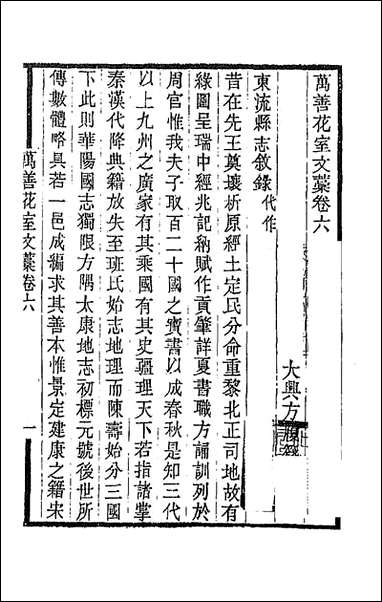 萬善花室文藁卷六
大興方履籛
東流縣志敘錄代作
昔在先王奠壤析原經土定民分命重黎北正司地故有
綠圖呈瑞中經兆記納賦作貢肇詳夏書職方誦訓列於
周官惟我夫子取百二十國之寶書以成春秋是知三代
以上九州之廣家有其乘國有其史疆理天下若指諸掌
秦漢代降典籍放失至班氏始志地理而陳壽始分三國
下此則華陽國志獨限方隅太康地志初標元號後世所
傳數體略具若一邑成編求其善本惟景定建康之籍宋
萬善花室文藁卷六
一